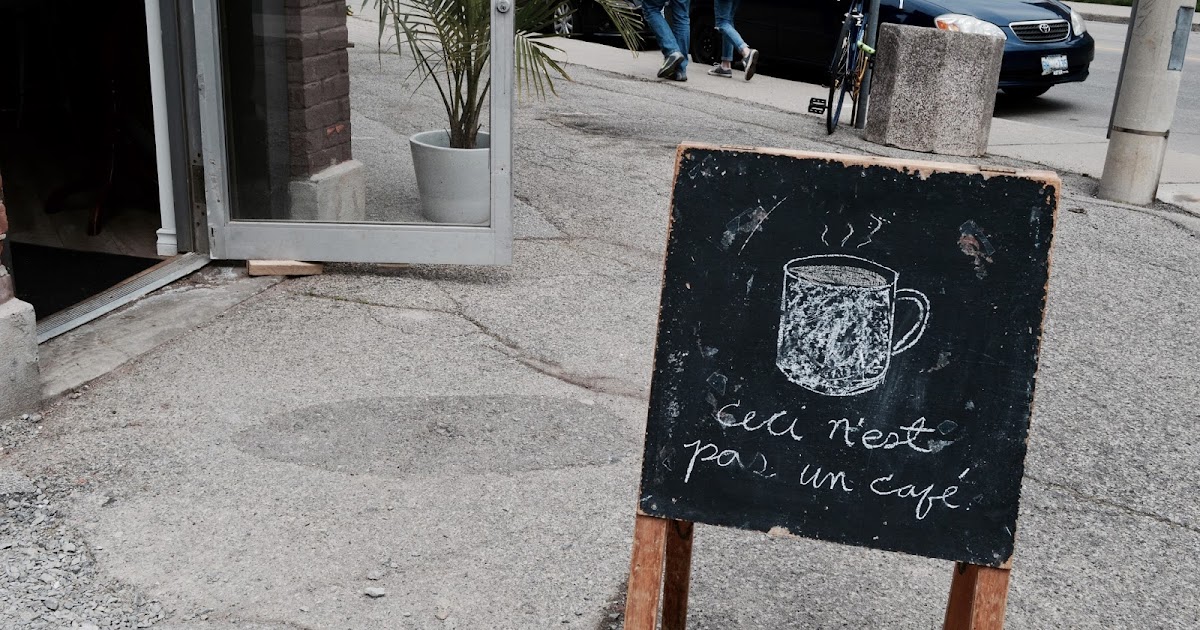 ceci n'est
pas un café